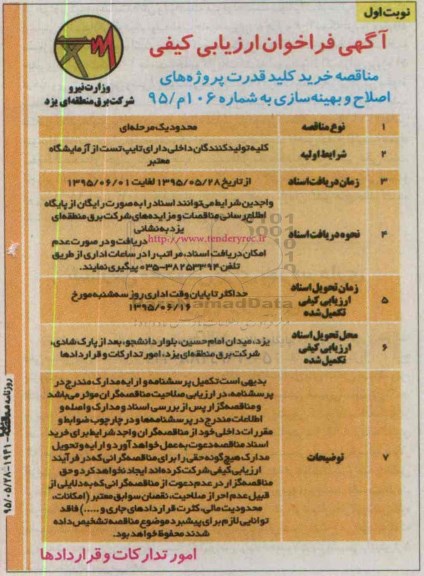 نوبت اول
آگهی فراخوان ارزیابی کیفی
مناقصه خرید کلید قدرت پروژه‌های
اصلاح و بهینه‌سازی به شماره ۱۰۶م/۹۵
وزارت نیرو
شرکت برق منطقه‌ای یزد
۱ نوع مناقصه محدود یک مرحله‌ای
۲ شرایط اولیه کلیه تولیدکنندگان داخلی دارای تایپ تست از آزمایشگاه
معتبر
۳ زمان دریافت اسناد از تاریخ ۱۳۹۵/۰۵/۲۸ لغایت ۱۳۹۵/۰۶/۰۱
۴ نحوه دریافت اسناد
واجدین شرایط می‌توانند اسناد را به صورت رایگان از پایگاه
اطلاع‌رسانی مناقصات و مزایده‌های شرکت برق منطقه‌ای
یزد به نشانی
http://www.tenderyrec.ir دریافت و در صورت عدم
امکان دریافت اسناد، مراتب را در ساعات اداری از طریق
تلفن ۳۸۲۵۳۳۹۴-۰۳۵ پیگیری نمایند.
۵ زمان تحویل اسناد
ارزیابی کیفی
تکمیل شده
حداکثر تا پایان وقت اداری روز سه‌شنبه مورخ
۱۳۹۵/۰۶/۱۶
۶ محل تحویل اسناد
ارزیابی کیفی
تکمیل شده
یزد، میدان امام حسین، بلوار دانشجو، بعد از پارک شادی،
شرکت برق منطقه‌ای یزد، امور تدارکات و قراردادها
۷ توضیحات
بدیهی است تکمیل پرسشنامه و ارایه مدارک مندرج در
پرسشنامه، در ارزیابی صلاحیت مناقصه‌گران موثر می‌باشد
و مناقصه‌گزار پس از بررسی اسناد و مدارک واصله و
اطلاعات مندرج در پرسشنامه‌ها و در چارچوب ضوابط و
مقررات داخلی خود از مناقصه‌گران واجد شرایط برای خرید
اسناد مناقصه دعوت به عمل خواهد آورد و ارایه و تحویل
مدارک هیچ‌گونه حقی را برای مناقصه‌گرانی که در فرآیند
ارزیابی کیفی شرکت کرده‌اند ایجاد نخواهد کرد و حق
مناقصه‌گزار در عدم دعوت از مناقصه‌گرانی که به دلایلی از
قبیل عدم احراز صلاحیت، نقصان سوابق معتبر (امکانات،
محدودیت مالی، کثرت قراردادهای جاری و ....) فاقد
توانایی لازم برای پیشبرد موضوع مناقصه تشخیص داده
شدند محفوظ خواهد بود.
امور تدارکات و قراردادها
روزنامه مناقصه - ۱۹۴۱ - ۹۵/۰۵/۲۸